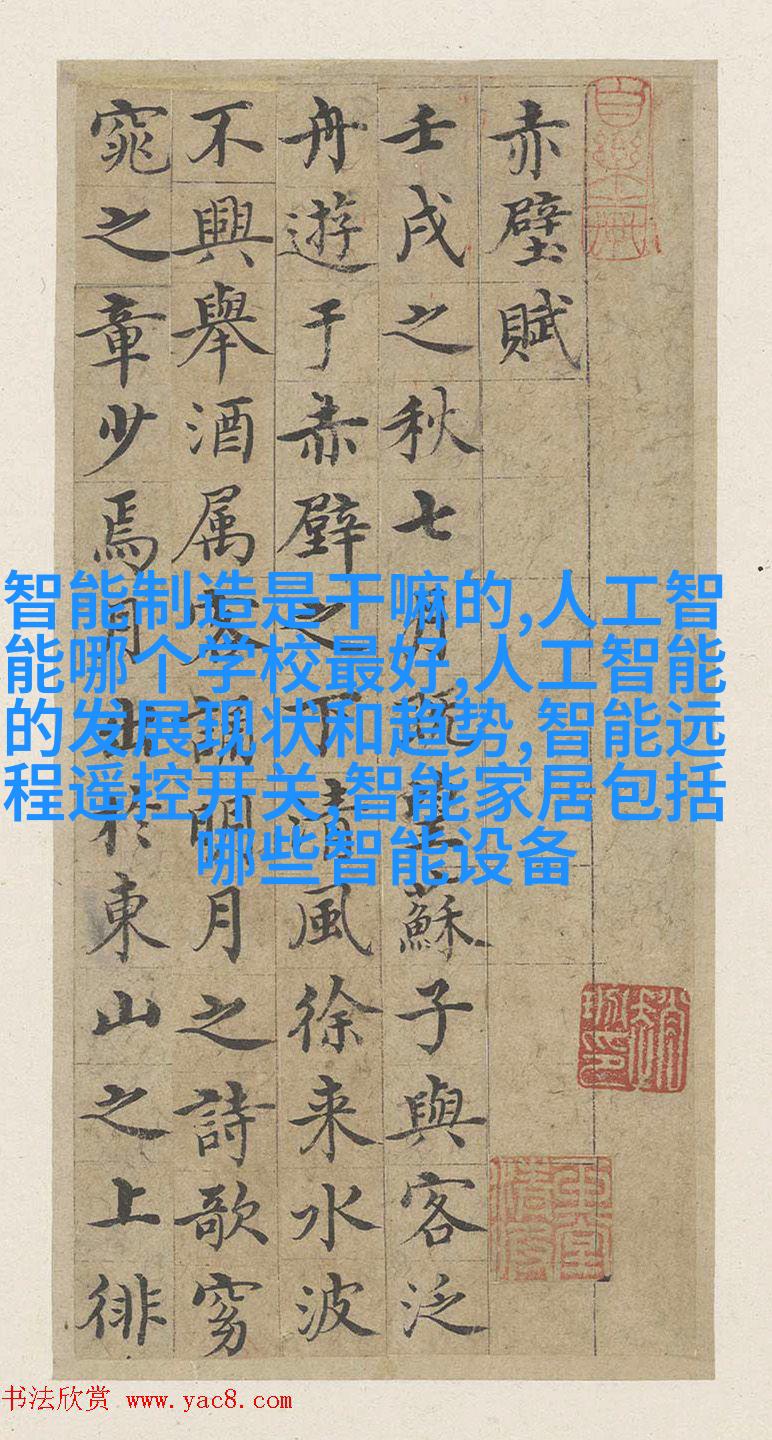 赤壁賦
壬戌之秋七月既望蘇子與客泛
舟遊于赤壁之下清風徐来水波
不興舉酒属客誦明月之詩歌窈
窕之章少焉月出於東山之上徘
智能制造是干嘛的,人工智
能哪个学校最好,人工智能
的发展现状和趋势,智能远
程遥控开关,智能家居包括
哪些智能设备
书法欣赏 www.yac8.com